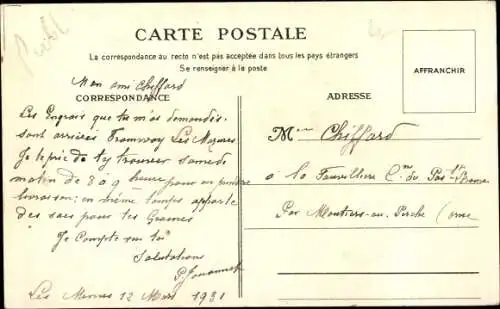 CARTE POSTALE
La correspondance au recto n'est pas acceptée dans tous les pays étrangers
Se renseigner à la poste
AFFRANCHIR
Mon ami Chiffard
CORRESPONDANCE
ADRESSE
Les Engrais que tu m'as demandés
sont arrivés Tramway Les Mesnus
Je te prie de t'y trouver samedi
matin de 8 à 9 heure pour en prendre
livraison; en même temps apporte
des sacs pour tes Graines
Je Compte sur toi
Salutations
Les Mesnus 12 Mars 1931
Mr Chiffard
à la
Par Moutiers-au-Perche (Orne